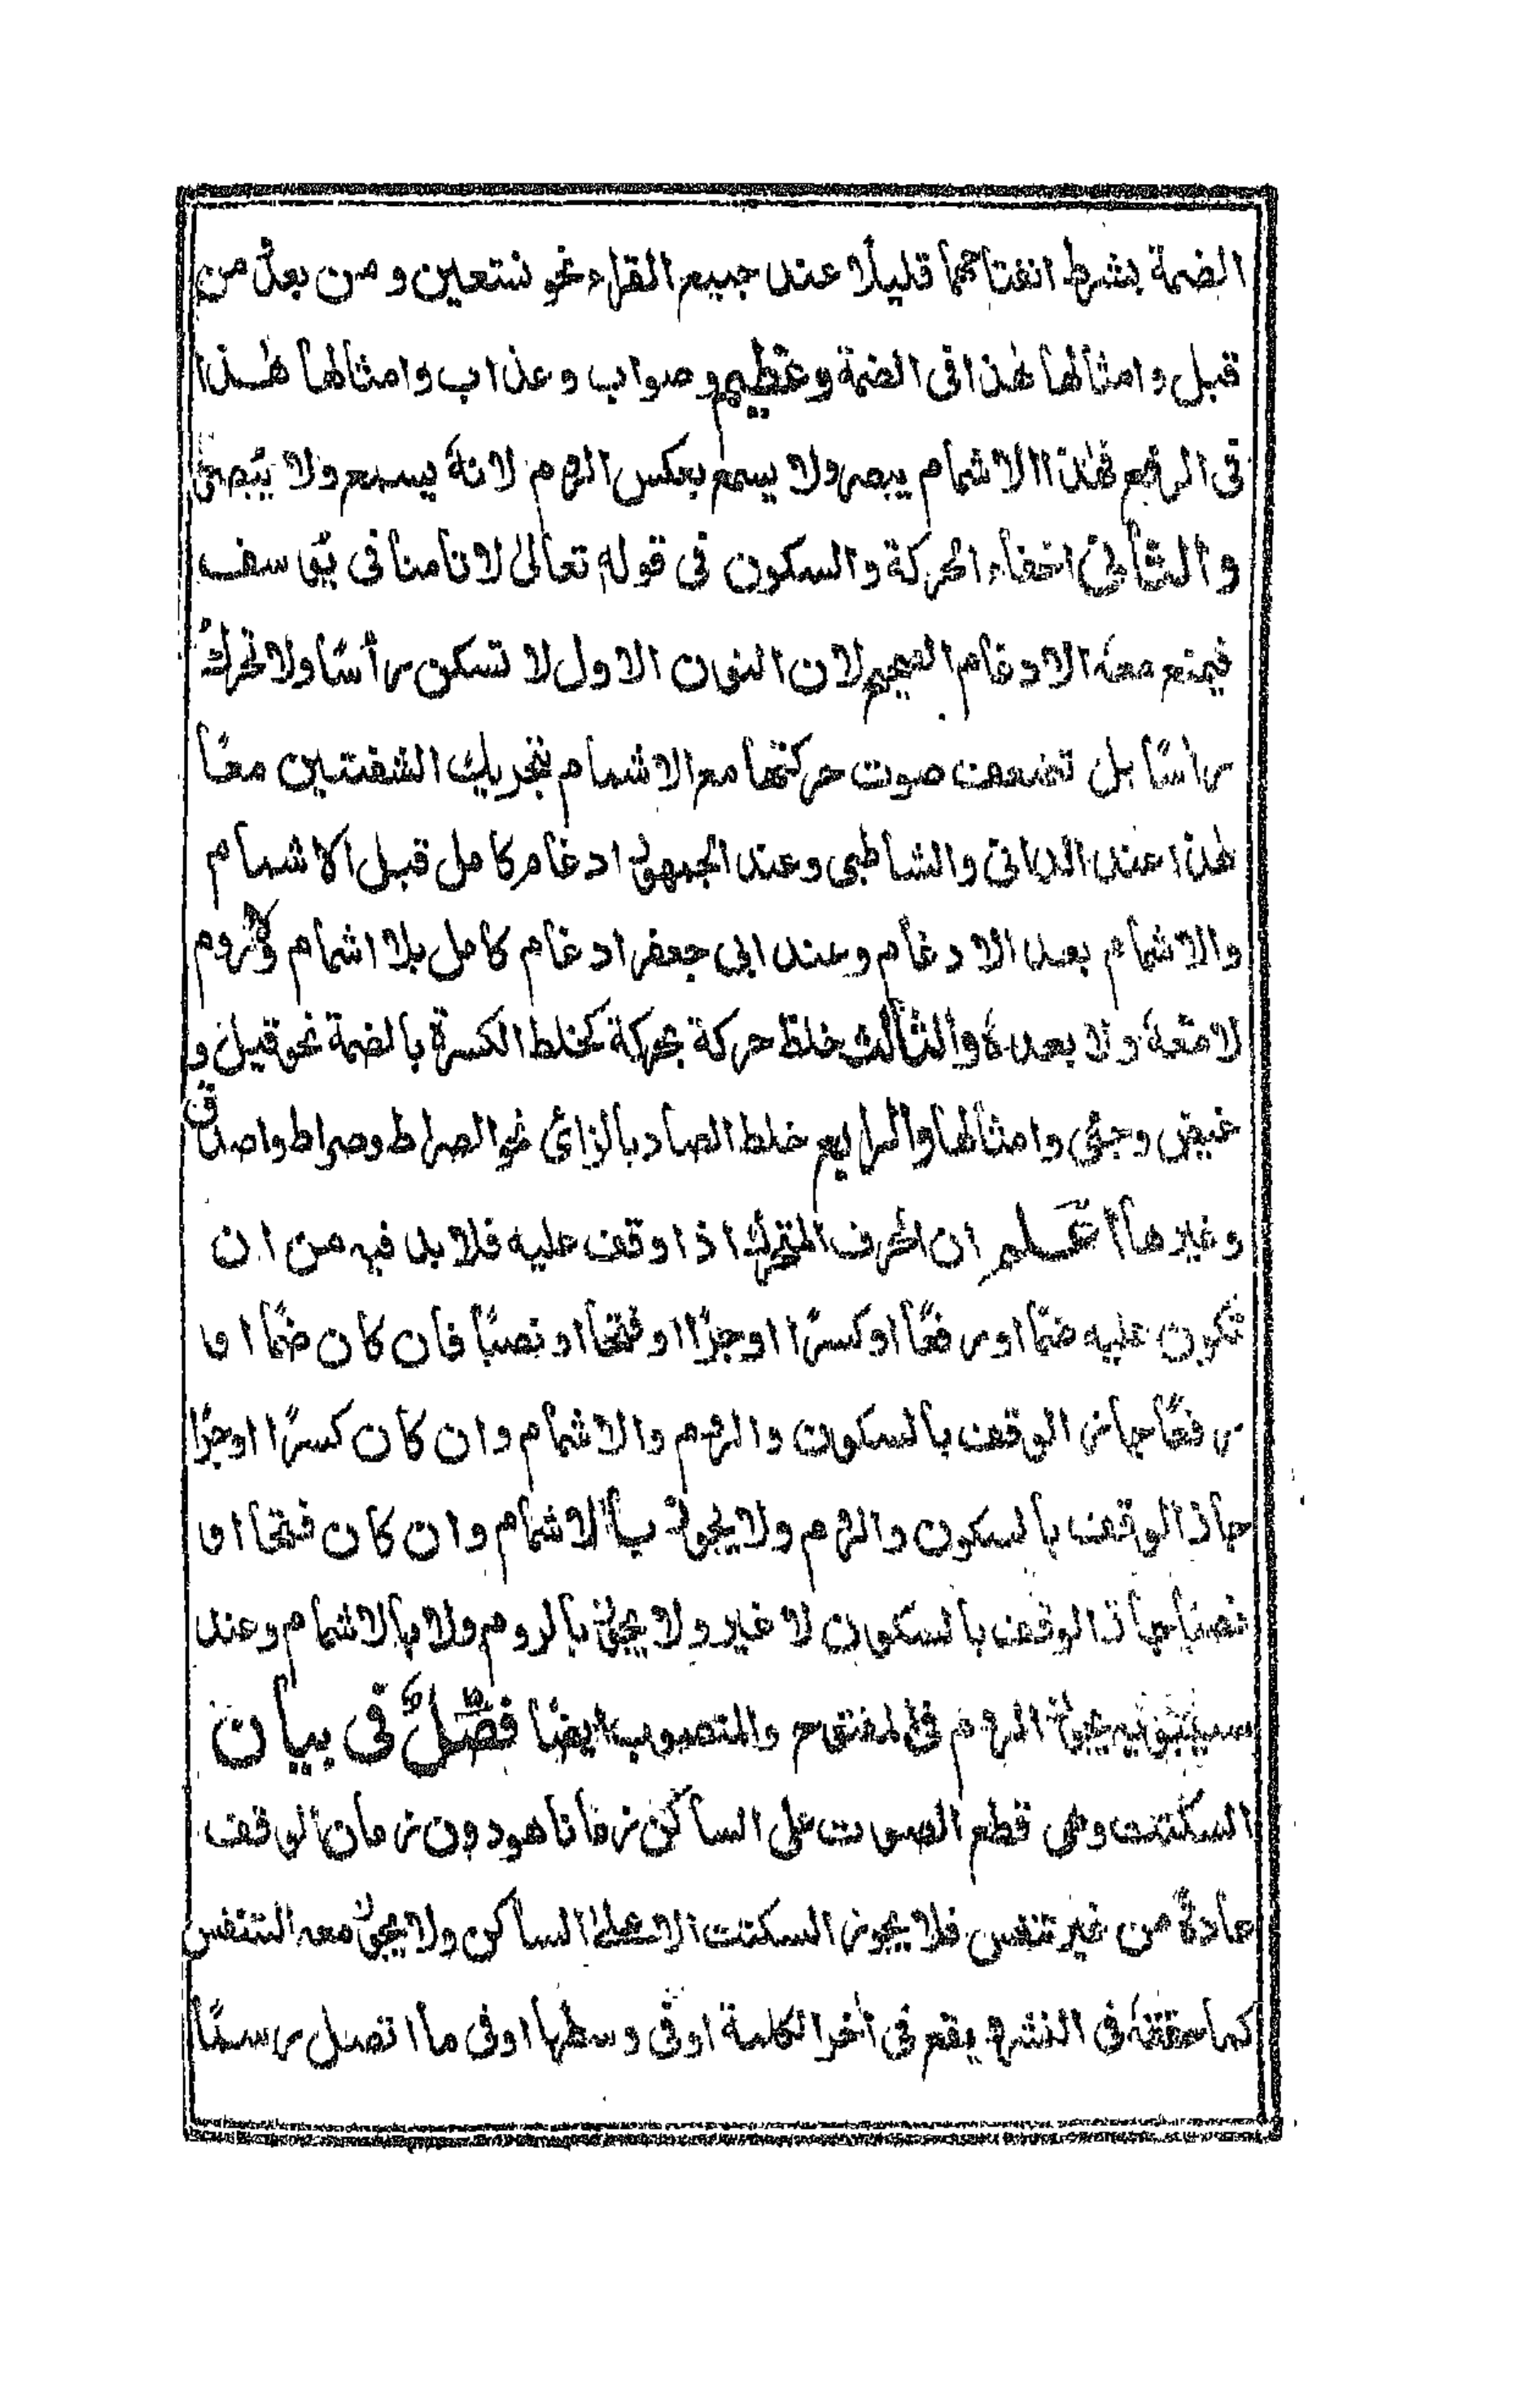 الضمة بشرط انفتاحهما قليلًا عند جميع القراء نحو نستعين و من بعدُ من
قبل وامثالها هٰذا فى الضمة وعظيم وصواب وعذاب وامثالها هٰذا
فى الرفع فهٰذا الاشمام يبصر ولا يسمع بعكس الروم لانهٗ يسمع ولا يُبصر
والثانى اخفاء الحركة والسكون فى قولهٖ تعالىٰ لا تامنا فى يوسف
فيمتنع معهٗ الادغام الصحيح لان النون الاول لا تسكن رأسًا ولا تحركُ
راسًا بل تضعف صوت حركتها مع الاشمام بتحريك الشفتين معًا
هٰذا عند الدانى والشاطبى وعند الجمهور ادغام كامل قبل الاشمام
والاشمام بعد الادغام وعند ابى جعفر ادغام كامل بلا اشمام ولا روم
لا معهٗ ولا بعدهٗ والثالث خلط حركة بحركة كخلط الكسرة بالضمة نحو قيل و
غيض وجئ وامثالها والرابع خلط الصاد بالزائ نحو الصراط وصراط واصدق
وغيرها اعلم ان الحرف المتحرك اذا وقف عليه فلا بد فيه من ان
تكون عليه ضمًا او رفعًا او كسرًا او جرًا او فتحًا او نصبًا فان كان ضمًا او
رفعًا جاز الوقف بالسكون والروم والاشمام وان كان كسرًا او جرًا
جاز الوقف بالسكون والروم ولا يجوز بالاشمام وان كان فتحًا او
نصبًا جاز الوقف بالسكون لا غير ولا يجوز بالروم ولا بالاشمام وعند
سيبويه يجوز الروم فى المفتوح والمنصوب ايضًا فصلٌ فى بيان
السكتت وهى قطع الصوت على الساكن زمانا هو دون زمان الوقف
عادةً من غير تنفس فلا يجوز السكتت الا علىٰ الساكن ولا يجوز معه التنفس
كما حققهٗ فى النشر و يقع فى اٰخر الكلمة او فى وسطها او فى ما اتصل رسمًا